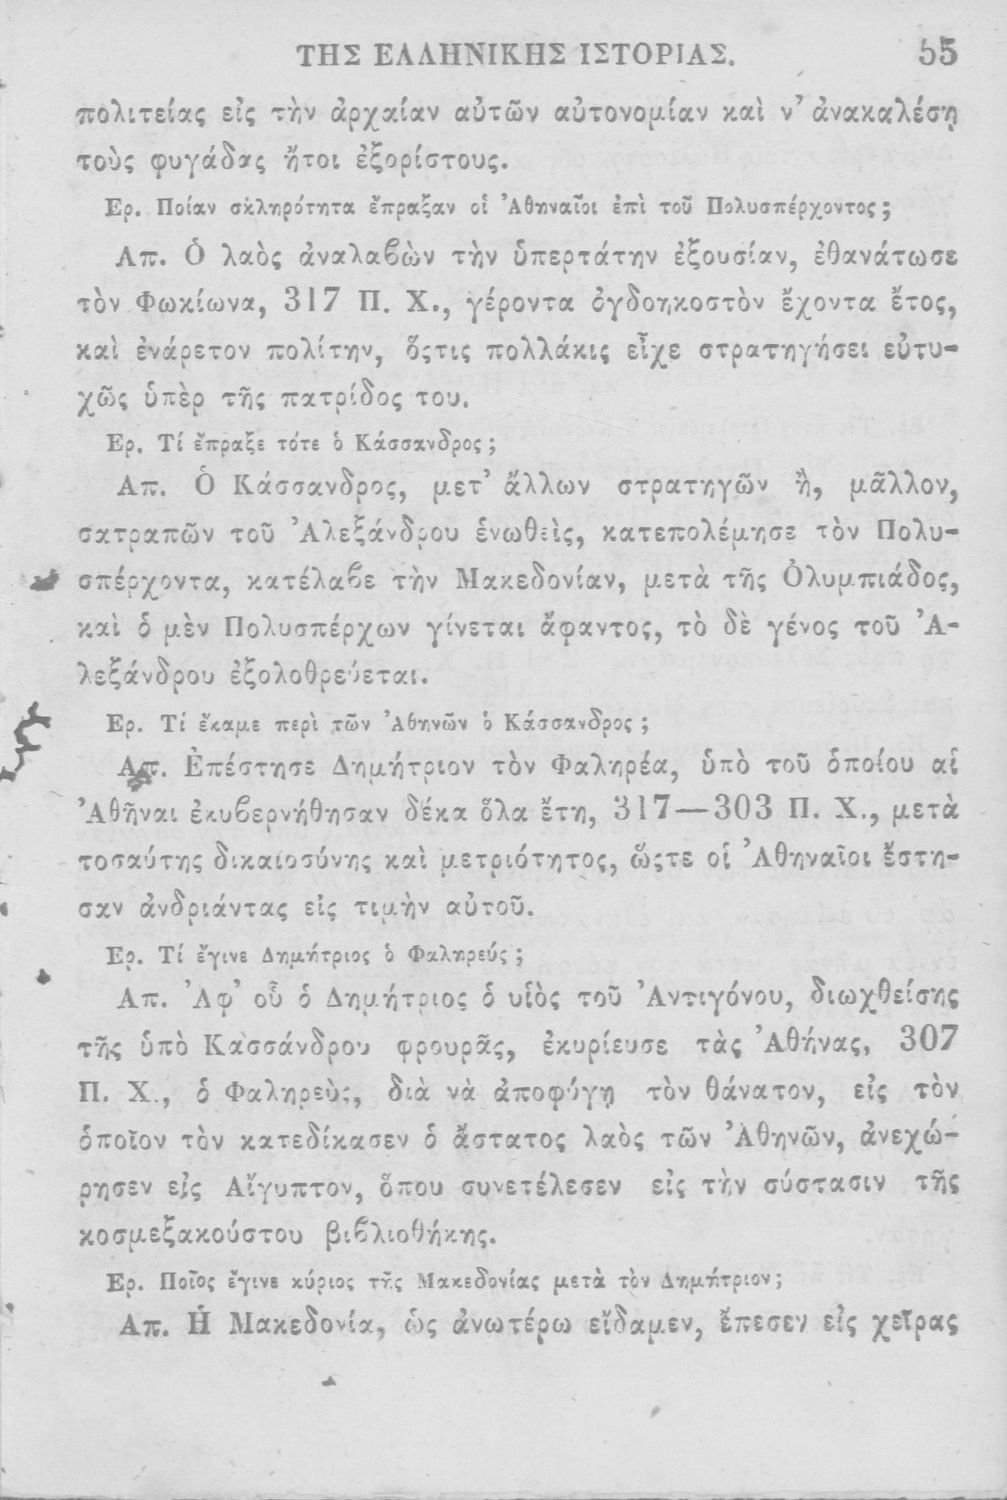 ΤΗΣ ΕΛΛΗΝΙΚΗΣ ΙΣΤΟΡΙΑΣ. 55
πολιτείας εἰς τὴν ἀρχαίαν αὐτῶν αὐτονομίαν καὶ ν' ἀνακαλέσῃ
τοὺς φυγάδας ἤτοι ἐξορίστους.
Ερ. Ποίαν σκληρότητα ἔπραξαν οἱ Ἀθηναῖοι ἐπὶ τοῦ Πολυσπέρχοντος;
Απ. Ὁ λαὸς ἀναλαβὼν τὴν ὑπερτάτην ἐξουσίαν, ἐθανάτωσε
τὸν Φωκίωνα, 317 Π. Χ., γέροντα ὀγδοηκοστὸν ἔχοντα ἔτος,
καὶ ἐνάρετον πολίτην, ὅςτις πολλάκις εἶχε στρατηγήσει εὐτυ-
χῶς ὑπὲρ τῆς πατρίδος του.
Ερ. Τί ἔπραξε τότε ὁ Κάσσανδρος;
Απ. Ὁ Κάσσανδρος, μετ' ἄλλων στρατηγῶν ἢ, μᾶλλον,
σατραπῶν τοῦ Ἀλεξάνδρου ἑνωθεὶς, κατεπολέμησε τὸν Πολυ-
σπέρχοντα, κατέλαβε τὴν Μακεδονίαν, μετὰ τῆς Ὀλυμπιάδος,
καὶ ὁ μὲν Πολυσπέρχων γίνεται ἄφαντος, τὸ δὲ γένος τοῦ Ἀ-
λεξάνδρου ἐξολοθρεύεται.
Ερ. Τί ἔκαμε περὶ τῶν Ἀθηνῶν ὁ Κάσσανδρος;
Απ. Ἐπέστησε Δημήτριον τὸν Φαληρέα, ὑπὸ τοῦ ὁποίου αἱ
Ἀθῆναι ἐκυβερνήθησαν δέκα ὅλα ἔτη, 317—303 Π. Χ., μετὰ
τοσαύτης δικαιοσύνης καὶ μετριότητος, ὥςτε οἱ Ἀθηναῖοι ἔστη-
σαν ἀνδριάντας εἰς τιμὴν αὐτοῦ.
Ερ. Τί ἔγινε Δημήτριος ὁ Φαληρεύς;
Απ. Ἀφ' οὗ ὁ Δημήτριος ὁ υἱὸς τοῦ Ἀντιγόνου, διωχθείσης
τῆς ὑπὸ Κασσάνδρου φρουρᾶς, ἐκυρίευσε τὰς Ἀθήνας, 307
Π. Χ., ὁ Φαληρεὺς, διὰ νὰ ἀποφύγῃ τὸν θάνατον, εἰς τὸν
ὁποῖον τὸν κατεδίκασεν ὁ ἄστατος λαὸς τῶν Ἀθηνῶν, ἀνεχώ-
ρησεν εἰς Αἴγυπτον, ὅπου συνετέλεσεν εἰς τὴν σύστασιν τῆς
κοσμεξακούστου βιβλιοθήκης.
Ερ. Ποῖος ἔγινε κύριος τῆς Μακεδονίας μετὰ τὸν Δημήτριον;
Απ. Ἡ Μακεδονία, ὡς ἀνωτέρω εἴδαμεν, ἔπεσεν εἰς χεῖρας